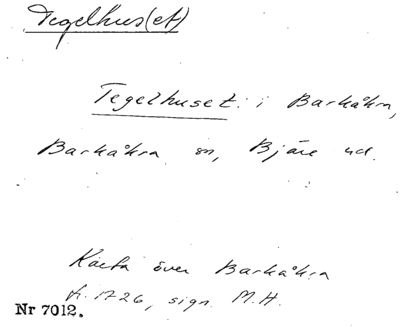 Tegelhus(et)
Tegelhuset i Barkåkra,
Barkåkra sn, Bjäre hd.
Karta över Barkåkra
fr. 1726, sign. M.H.
Nr 7012.